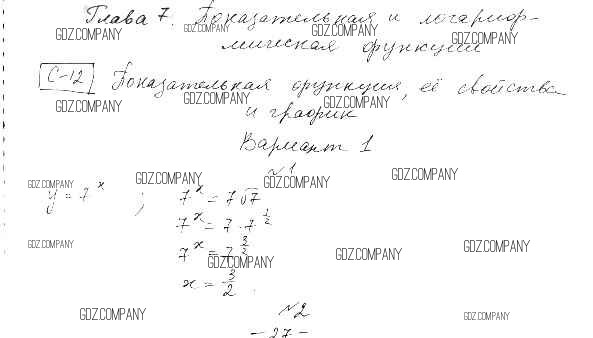 Глава 7. Показательная и логариф-
мическая функции
С-12 Показательная функция, её свойства
и график
Вариант 1
№1
y = 7^x ; 7^x = 7√7
7^x = 7 · 7^(1/2)
7^x = 7^(3/2)
x = 3/2.
№2
- 27 -
GDZ.COMPANY GDZ.COMPANY GDZ.COMPANY GDZ.COMPANY
GDZ.COMPANY GDZ.COMPANY GDZ.COMPANY
GDZ.COMPANY GDZ.COMPANY GDZ.COMPANY GDZ.COMPANY
GDZ.COMPANY GDZ.COMPANY GDZ.COMPANY GDZ.COMPANY
GDZ.COMPANY GDZ.COMPANY